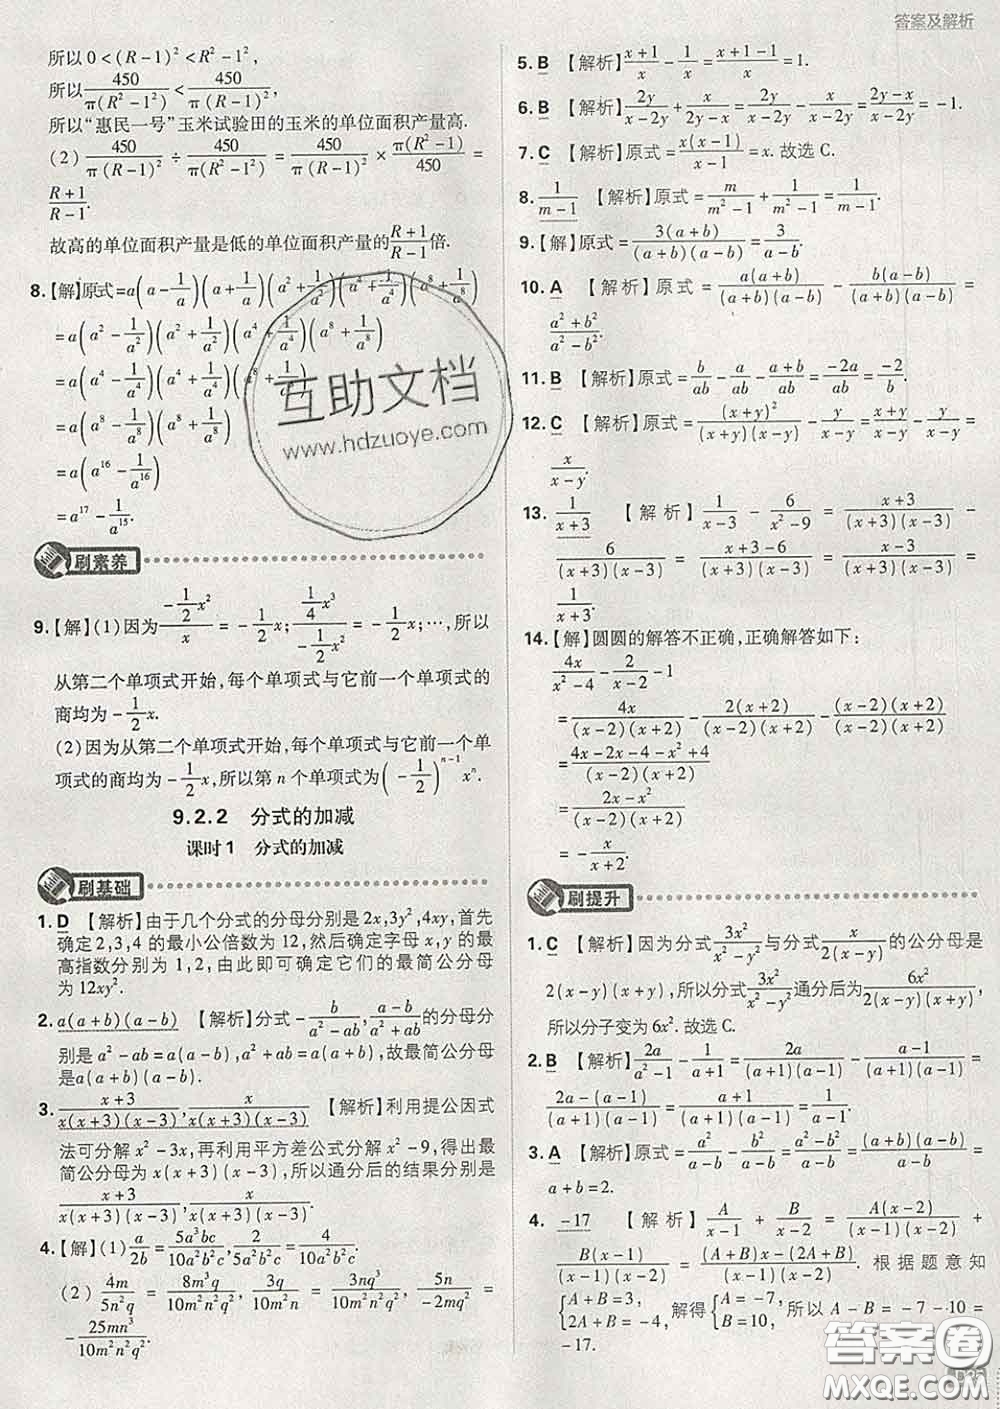 答案及解析
所以 0 < (R-1)² < R²-1²,
所以 450/π(R²-1²) < 450/π(R-1)².
所以“惠民一号”玉米试验田的玉米的单位面积产量高.
(2) 450/π(R-1)² ÷ 450/π(R²-1²) = 450/π(R-1)² × π(R²-1²)/450 =
(R+1)/(R-1).
故高的单位面积产量是低的单位面积产量的(R+1)/(R-1)倍.
8.【解】原式=a(a-1/a)(a+1/a)(a²+1/a²)(a⁴+1/a⁴)(a⁸+1/a⁸)
=a(a²-1/a²)(a²+1/a²)(a⁴+1/a⁴)(a⁸+1/a⁸)
=a(a⁴-1/a⁴)(a⁴+1/a⁴)(a⁸+1/a⁸)
=a(a⁸-1/a⁸)(a⁸+1/a⁸)
=a(a¹⁶-1/a¹⁶)
=a¹⁷-1/a¹⁵.
刷素养
9.【解】(1)因为(-1/2 x²)/x = -1/2 x; (1/4 x³)/(-1/2 x²) = -1/2 x; …, 所以
从第二个单项式开始,每个单项式与它前一个单项式的
商均为-1/2 x.
(2)因为从第二个单项式开始,每个单项式与它前一个单
项式的商均为-1/2 x,所以第 n 个单项式为(-1/2)ⁿ⁻¹xⁿ.
9.2.2 分式的加减
课时1 分式的加减
刷基础
1. D 【解析】由于几个分式的分母分别是 2x,3y²,4xy,首先
确定 2,3,4 的最小公倍数为 12,然后确定字母 x,y 的最
高指数分别为 1,2,由此即可确定它们的最简公分母
为 12xy².
2. a(a+b)(a-b) 【解析】分式-b/(a²-ab),(a-b)/(a²+ab)的分母分
别是 a²-ab=a(a-b),a²+ab=a(a+b),故最简公分母
是a(a+b)(a-b).
3. (x+3)/x(x+3)(x-3), x/x(x+3)(x-3) 【解析】利用提公因式
法可分解 x²-3x,再利用平方差公式分解 x²-9,得出最
简公分母为 x(x+3)(x-3),所以通分后的结果分别是
(x+3)/x(x+3)(x-3), x/x(x+3)(x-3).
4.【解】(1) a/2b = 5a³bc/10a²b²c, 2/5a²b²c = 4/10a²b²c.
(2) 4m/5n²q = 8m³q/10m²n²q², 3q/10m²n = 3nq³/10m²n²q², 5n/-2mq² =
-25mn³/10m²n²q².
5. B 【解析】(x+1)/x - 1/x = (x+1-1)/x = 1.
6. B 【解析】2y/(x-2y) + x/(2y-x) = 2y/(x-2y) - x/(x-2y) = (2y-x)/(x-2y) = -1.
7. C 【解析】原式 = x(x-1)/(x-1) = x. 故选 C.
8. 1/(m-1) 【解析】原式 = m/(m²-1) + 1/(m²-1) = 1/(m-1).
9.【解】原式 = 3(a+b)/(a+b)(a-b) = 3/(a-b).
10. A 【解析】原式 = a(a+b)/(a+b)(a-b) - b(a-b)/(a+b)(a-b) =
(a²+b²)/(a²-b²).
11. B 【解析】原式 = b/ab - a/ab - (a+b)/ab = -2a/ab = -2/b.
12. C 【解析】原式 = (x+y)²/(x+y)(x-y) - y/(x-y) = (x+y)/(x-y) - y/(x-y) =
x/(x-y).
13. 1/(x+3) 【解析】1/(x-3) - 6/(x²-9) = (x+3)/(x+3)(x-3) -
6/(x+3)(x-3) = (x+3-6)/(x+3)(x-3) = (x-3)/(x+3)(x-3) =
1/(x+3).
14.【解】圆圆的解答不正确,正确解答如下:
4x/(x²-4) - 2/(x-2) - 1
= 4x/(x-2)(x+2) - 2(x+2)/(x-2)(x+2) - (x-2)(x+2)/(x-2)(x+2)
= (4x-2x-4-x²+4)/(x-2)(x+2)
= (2x-x²)/(x-2)(x+2)
= -x/(x+2).
刷提升
1. C 【解析】因为分式3x²/(x²-y²)与分式x/2(x-y)的公分母是
2(x-y)(x+y),所以分式3x²/(x²-y²)通分后为6x²/2(x-y)(x+y),
所以分子变为 6x². 故选 C.
2. B 【解析】2a/(a²-1) - 1/(a+1) = 2a/(a+1)(a-1) - (a-1)/(a+1)(a-1) =
(2a-(a-1))/(a+1)(a-1) = (a+1)/(a+1)(a-1) = 1/(a-1).
3. A 【解析】原式 = a²/(a-b) - b²/(a-b) = (a²-b²)/(a-b) = (a+b)(a-b)/(a-b) =
a+b=2.
4. -17 【解析】A/(x-1) + B/(x-2) = A(x-2)/(x-1)(x-2) +
B(x-1)/(x-1)(x-2) = ((A+B)x-(2A+B))/(x-1)(x-2). 根据题意知
{A+B=3, 2A+B=-4, 解得{A=-7, B=10, 所以 A-B=-7-10=
-17.
互助文档
www.hdzuoye.com
答案圈
MXQE.COM